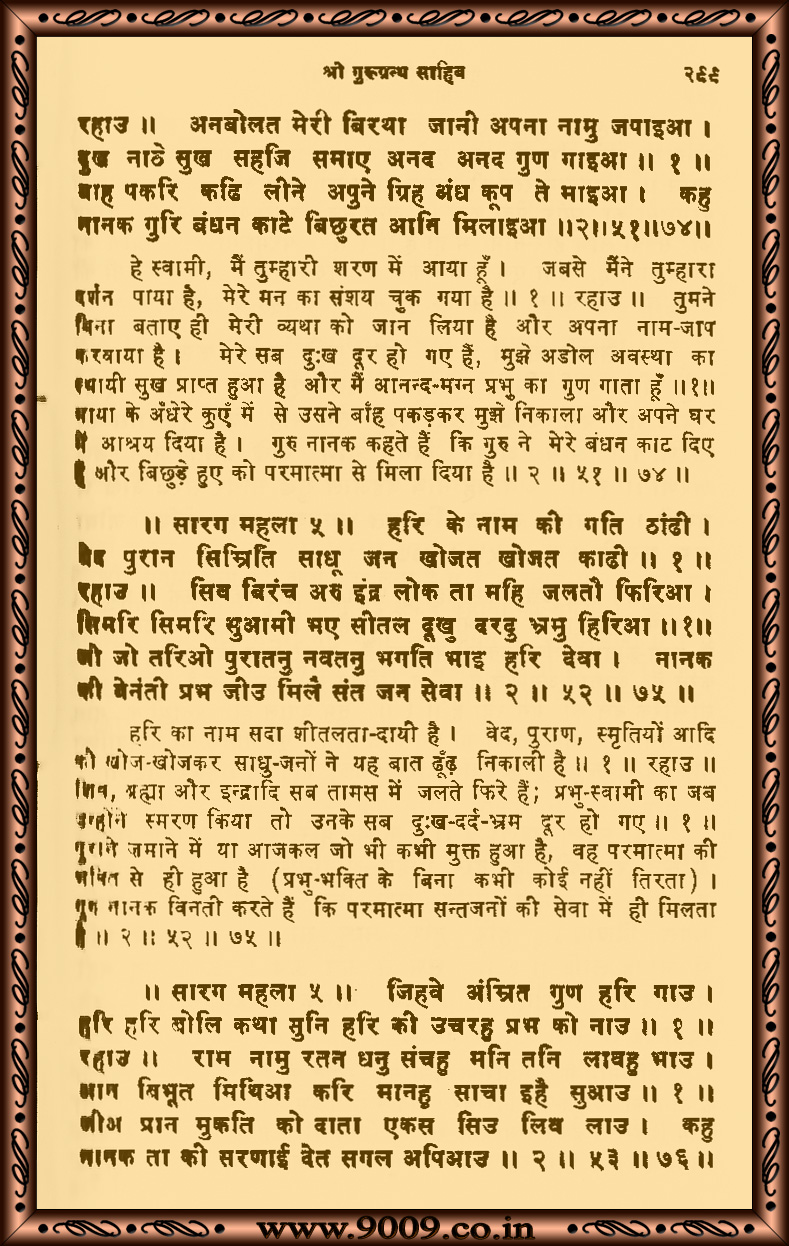 श्री गुरुग्रन्थ साहिब २९९
रहाउ ॥ अनबोलत मेरी बिरथा जानी अपना नामु जपाइआ ।
दुख नाठे सुख सहजि समाए अनद अनद गुण गाइआ ॥ १ ॥
बाह पकरि कढि लीने अपुने ग्रिह अंध कूप ते माइआ । कहु
नानक गुरि बंधन काटे बिछुरत आनि मिलाइआ ॥२॥५१॥७४॥
हे स्वामी, मैं तुम्हारी शरण में आया हूँ । जबसे मैंने तुम्हारा
दर्शन पाया है, मेरे मन का संशय चुक गया है ॥ १ ॥ रहाउ ॥ तुमने
बिना बताए ही मेरी व्यथा को जान लिया है और अपना नाम-जाप
करवाया है । मेरे सब दुःख दूर हो गए हैं, मुझे अडोल अवस्था का
स्थायी सुख प्राप्त हुआ है और मैं आनन्द-मग्न प्रभु का गुण गाता हूँ ॥१॥
माया के अँधेरे कुएँ में से उसने बाँह पकड़कर मुझे निकाला और अपने घर
में आश्रय दिया है । गुरु नानक कहते हैं कि गुरु ने मेरे बंधन काट दिए
हैं और बिछुड़े हुए को परमात्मा से मिला दिया है ॥ २ ॥ ५१ ॥ ७४ ॥
॥ सारग महला ५ ॥ हरि के नाम की गति ठांढी ।
बेद पुरान सिम्रिति साधू जन खोजत खोजत काढी ॥ १ ॥
रहाउ ॥ सिव बिरंच अरु इंद्र लोक ता महि जलतौ फिरिआ ।
सिमरि सिमरि सुआमी भए सीतल दूखु दरदु भ्रमु हिरिआ ॥१॥
जो जो तरिओ पुरातनु नवतनु भगति भाइ हरि देवा । नानक
की बेनंती प्रभ जीउ मिलै संत जन सेवा ॥ २ ॥ ५२ ॥ ७५ ॥
हरि का नाम सदा शीतलता-दायी है । वेद, पुराण, स्मृतियों आदि
को खोज-खोजकर साधु-जनों ने यह बात ढूँढ़ निकाली है ॥ १ ॥ रहाउ ॥
शिव, ब्रह्मा और इन्द्रादि सब तामस में जलते फिरे हैं; प्रभु-स्वामी का जब
उन्होंने स्मरण किया तो उनके सब दुःख-दर्द-भ्रम दूर हो गए ॥ १ ॥
पुराने ज़माने में या आजकल जो भी कभी मुक्त हुआ है, वह परमात्मा की
भक्ति से ही हुआ है (प्रभु-भक्ति के बिना कभी कोई नहीं तिरता) ।
गुरु नानक विनती करते हैं कि परमात्मा सन्तजनों की सेवा में ही मिलता
है ॥ २ ॥ ५२ ॥ ७५ ॥
॥ सारग महला ५ ॥ जिहवे अंम्रित गुण हरि गाउ ।
हरि हरि बोलि कथा सुनि हरि की उचरहु प्रभ को नाउ ॥ १ ॥
रहाउ ॥ राम नामु रतन धनु संचहु मनि तनि लावहु भाउ ।
आन बिभूत मिथिआ करि मानहु साचा इहै सुआउ ॥ १ ॥
जीअ प्रान मुकति को दाता एकस सिउ लिव लाउ । कहु
नानक ता की सरणाई देत सगल अपिआउ ॥ २ ॥ ५३ ॥ ७६ ॥
www.9009.co.in